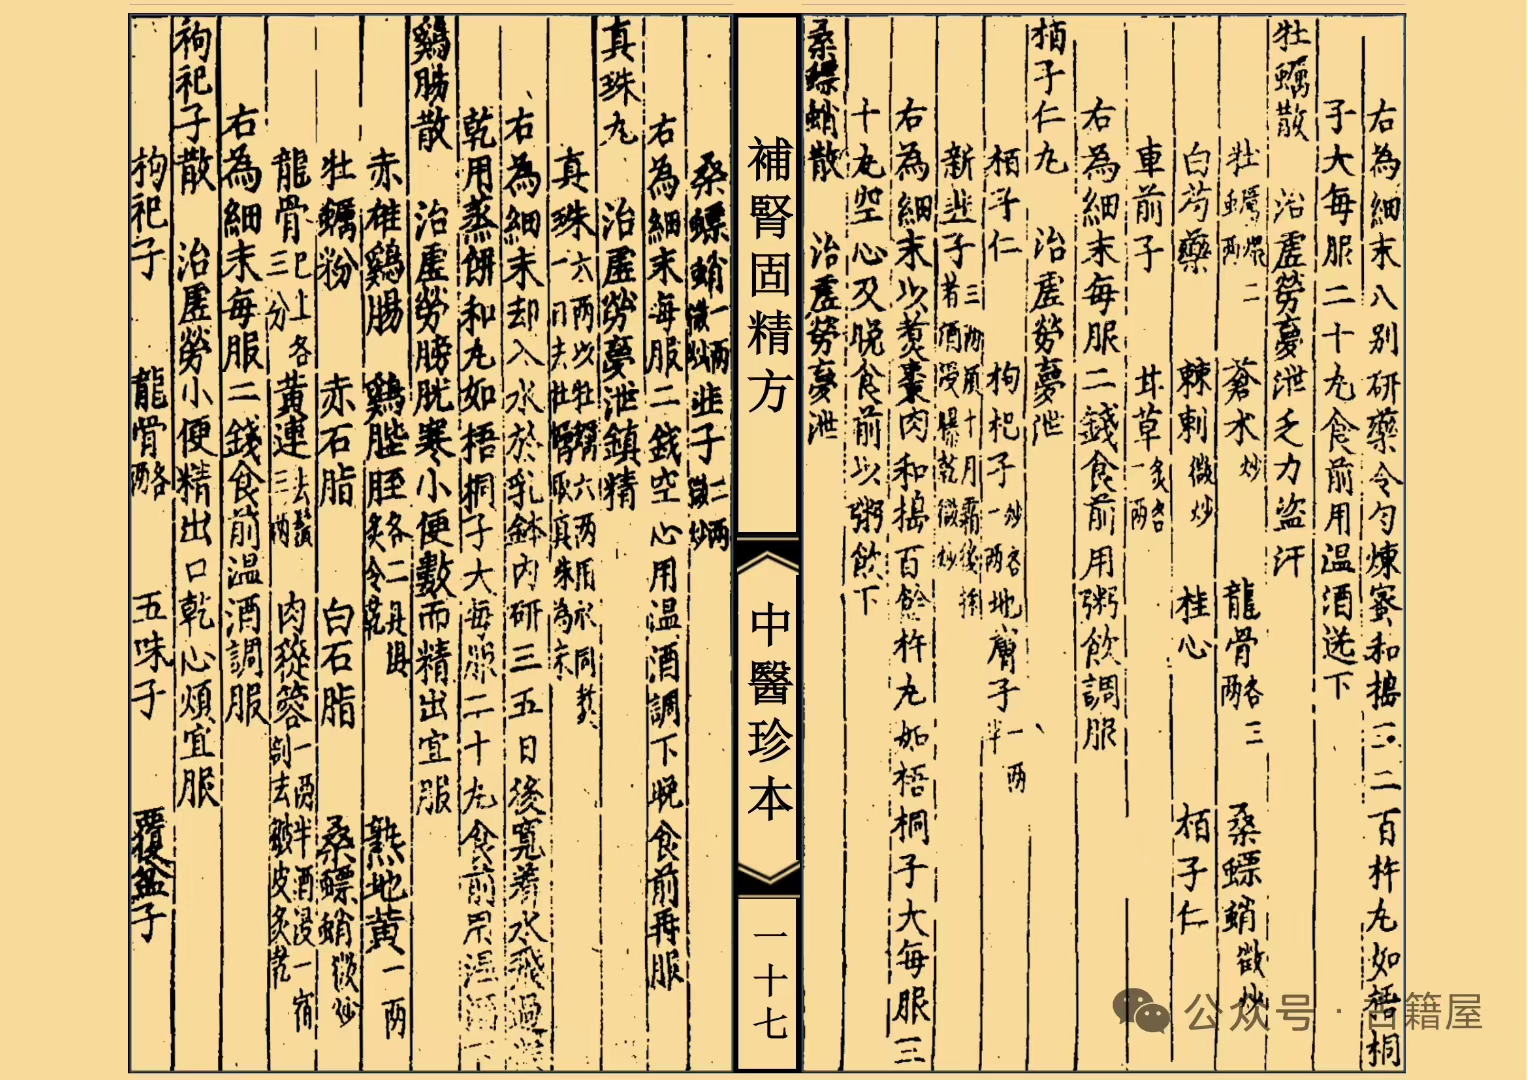 右為細末八別研藥令勻煉蜜和搗三二百杵丸如梧桐
子大每服二十丸食前用温酒送下
牡蠣散　治虛勞夢泄乏力盜汗
牡蠣煨二兩　蒼术炒　龍骨各三兩　桑螵蛸微炒
白芍藥　棘刺微炒　桂心　栢子仁
車前子　甘草炙各一兩
右為細末每服二錢食前用粥飲調服
栢子仁丸　治虛勞夢泄
栢子仁　枸杞子炒各一兩　地膚子一兩半
新韭子三兩須十月霜後採者酒浸曝乾微炒
右為細末少煑棗肉和搗百餘杵丸如梧桐子大每服三
十丸空心及晚食前以粥飲下
桑螵蛸散　治虛勞夢泄
補腎固精方
中醫珍本
一十七
桑螵蛸一兩微炒　韭子二兩微炒
右為細末每服二錢空心用温酒調下晚食前再服
真珠丸　治虛勞夢泄鎮精
真珠六兩以牡蠣六兩用水同煑一日去牡蠣取真珠為末
右為細末却入水於乳鉢内研三五日後寬着水飛過
乾用蒸餅和丸如梧桐子大每服二十丸食前用温酒下
鷄腸散　治虛勞膀胱寒小便數而精出宜服
赤雄鷄腸　鷄䏶胵各二具炙令乾　熟地黄一兩
牡蠣粉　赤石脂　白石脂　桑螵蛸微炒
龍骨已上各三分　黄連去鬚三兩　肉蓯蓉一兩半酒浸一宿刮去皴皮炙乾
右為細末每服二錢食前温酒調服
枸祀子散　治虛勞小便精出口乾心煩宜服
枸祀子　龍骨各兩　五味子　覆盆子
公众号·古籍屋